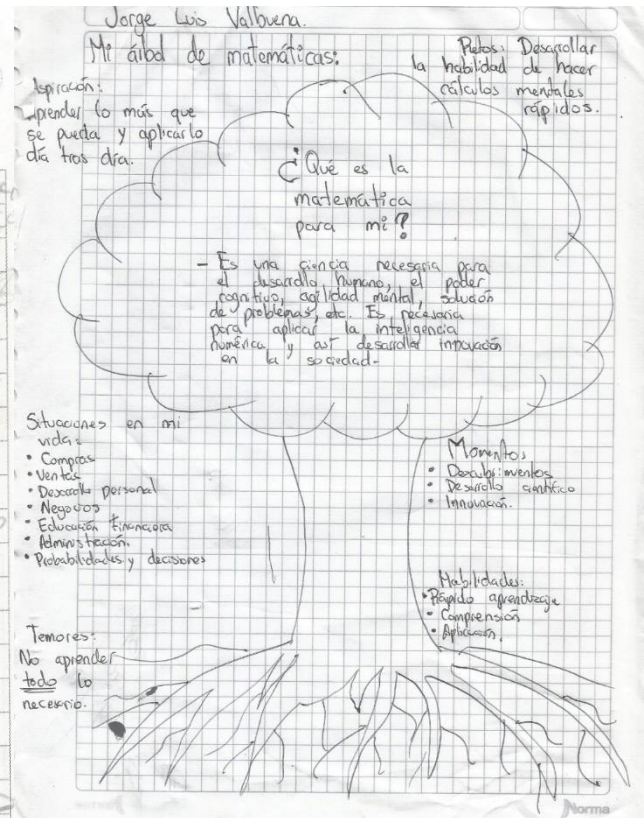 Jorge Luis Valbuena.
Mi árbol de matemáticas:
Retos: Desarrollar
la habilidad de hacer
cálculos mentales
rápidos.
Aspiración:
Aprender lo más que
se pueda y aplicarlo
día tras día.
¿Qué es la
matemática
para mi?
- Es una ciencia necesaria para
el desarrollo humano, el poder
cognitivo, agilidad mental, solución
de problemas, etc. Es necesaria
para aplicar la inteligencia
numérica y así desarrollar innovación
en la sociedad-
Situaciones en mi
vida:
• Compras
• Ventas
• Desarrollo personal
• Negocios
• Educación Financiera
• Administración.
• Probabilidades y decisiones
Momentos
• Descubrimientos
• Desarrollo científico
• Innovación.
Habilidades:
• Rápido aprendizaje
• Comprensión
• Aplicación.
Temores:
No aprender
todo lo
necesario.
Norma